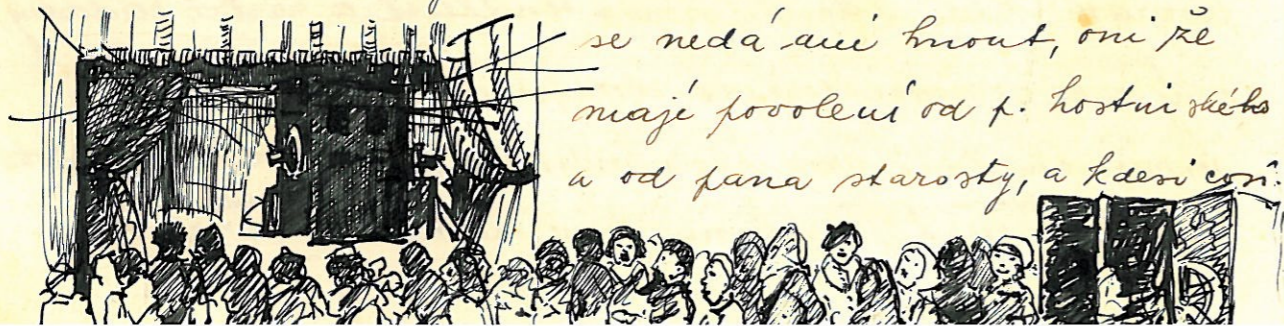 se nedá ani hnout, oni že
mají povolení od p. hostinského
a od pana starosty, a kdesi cosi.